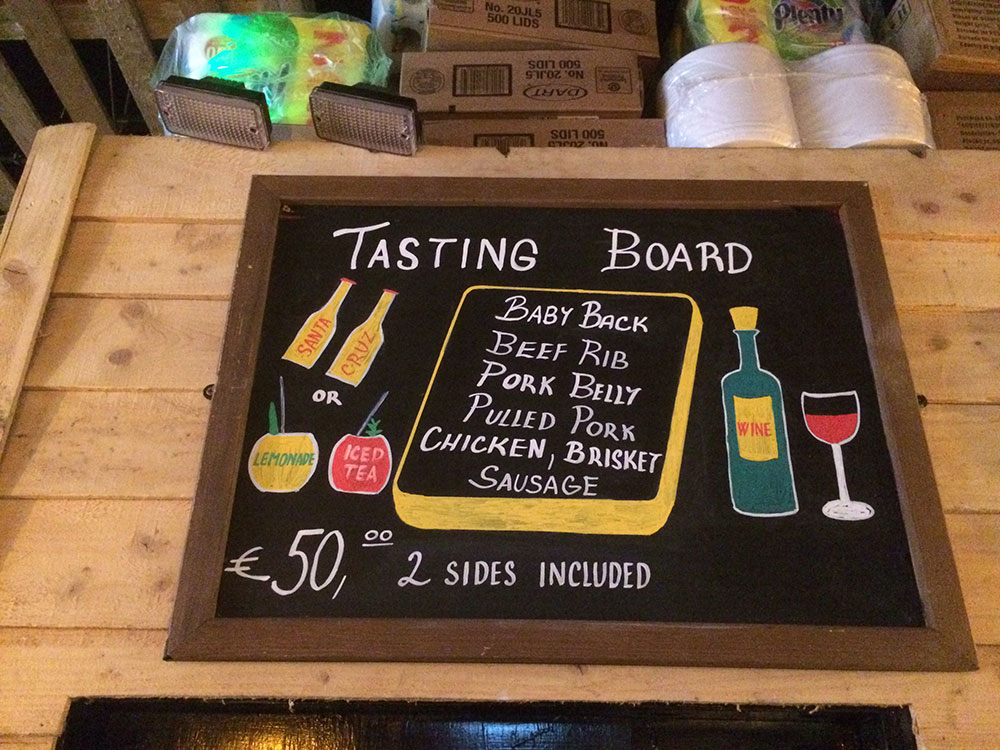 No. 20JL5
500 LIDS
Plenty
No. 20JL5
500 LIDS
DART
No. 20JL5
500 LIDS
TASTING BOARD
SANTA
CRUZ
OR
LEMONADE
ICED
TEA
BABY BACK
BEEF RIB
PORK BELLY
PULLED PORK
CHICKEN, BRISKET
SAUSAGE
WINE
€ 50,00 2 SIDES INCLUDED